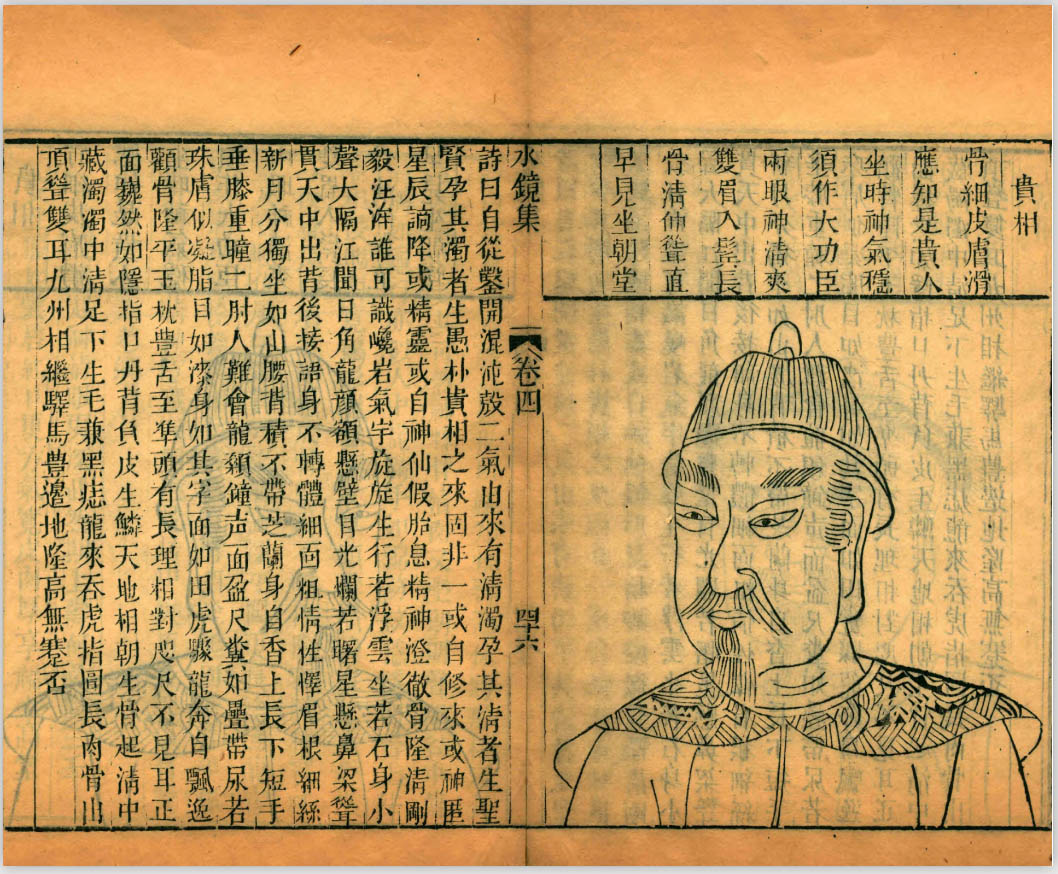 貴相
骨細皮膚滑
應知是貴人
坐時神氣穩
須作大功臣
兩眼神清爽
雙眉入鬂長
骨清伸聳直
早見坐朝堂
水鏡集
卷四
四十六
詩曰自從鑿開混沌殼二氣由來有淸濁孕其淸者生聖
賢孕其濁者生愚朴貴相之來固非一或自修來或神匿
星辰謫降或精靈或自神仙假胎息精神澄徹骨隆淸剛
毅汪洋誰可識巉岩氣宇旋旋生行若浮雲坐若石身小
聲大隔江聞日角龍顔額懸壁目光爛若曙星懸鼻梁聳
貫天中出背後接語身不轉體細面粗情性懌眉根細絲
新月分獨坐如山腰背積不帶芝蘭身自香上長下短手
垂膝重瞳二肘人難會龍顙鐘声面盈尺糞如疊帶尿若
珠膚似凝脂目如漆身如其字面如田虎驟龍奔自飄逸
顴骨隆平玉枕豐舌至準頭有長理相對咫尺不見耳正
面巍然如隱指口丹背負皮生鱗天地相朝生骨起淸中
藏濁濁中淸足下生毛兼黑痣龍來吞虎指圖長肉骨出
頂聳雙耳九州相繼驛馬豊邉地隆高無蹇否